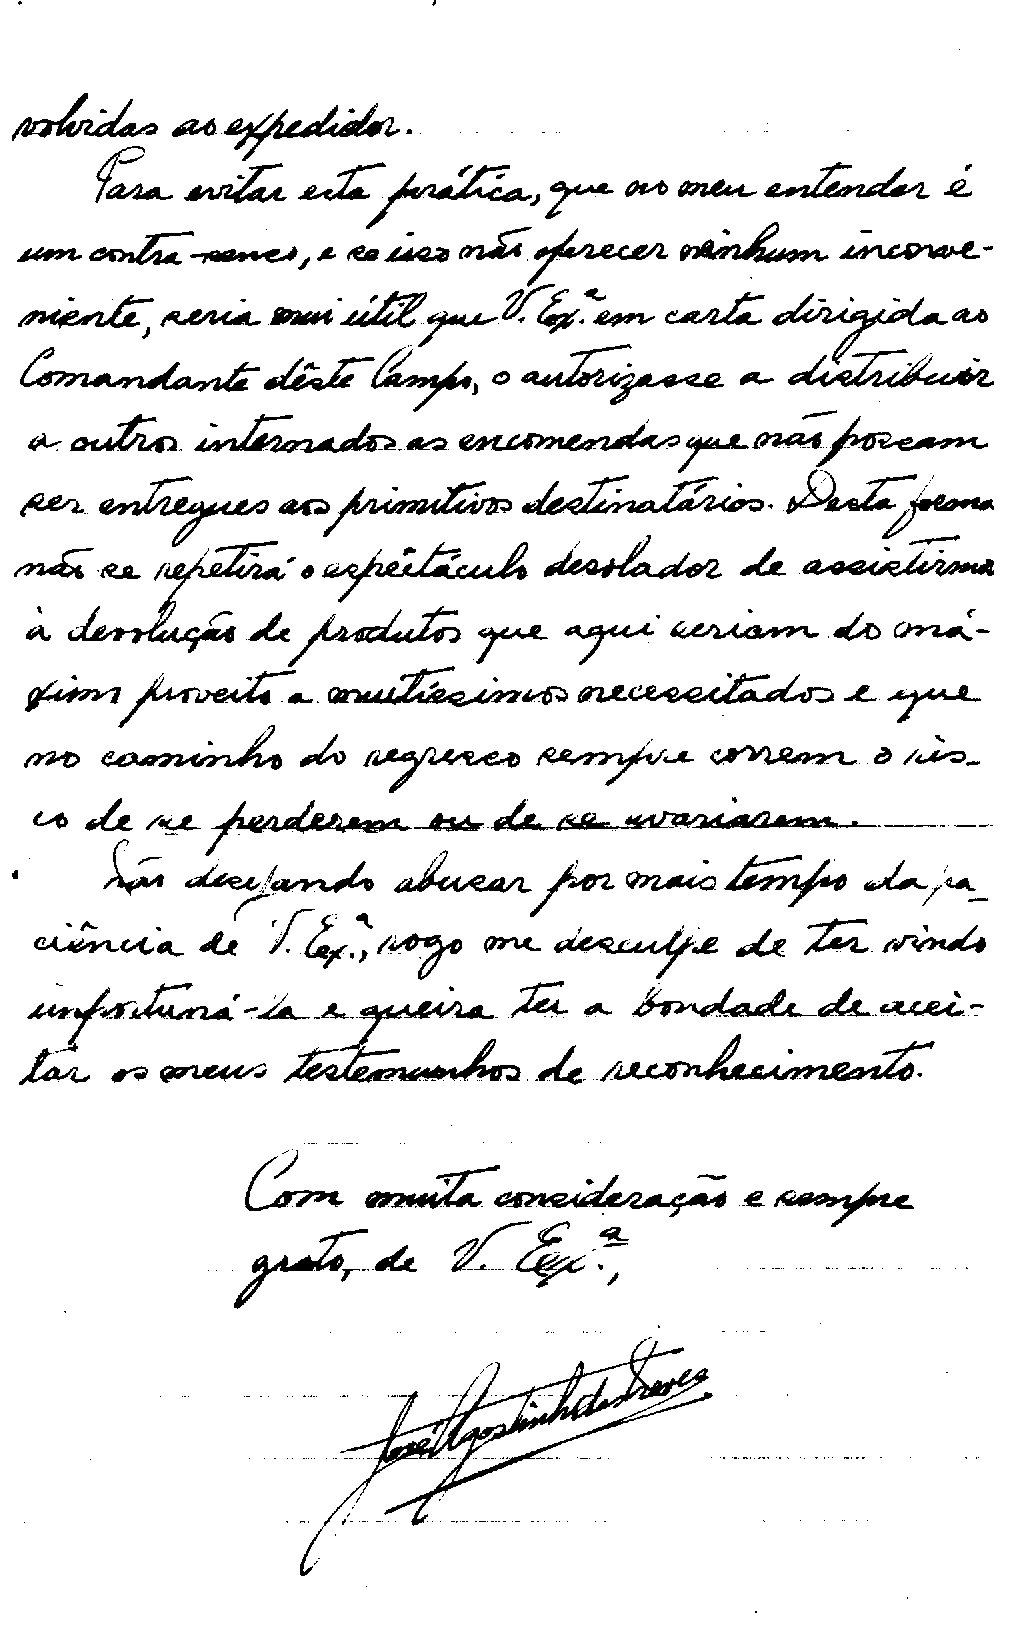 volvidas ao expedidor.
Para evitar esta prática, que no meu entender é
um contra-senso, e se isso não oferecer nenhum inconve-
niente, seria mui útil que V. Ex.ª em carta dirigida ao
Comandante dêste Campo, o autorizasse a distribuir
a outros internados as encomendas que não possam
ser entregues aos primitivos destinatários. Desta forma
não se repetirá o espectáculo desolador de assistirmos
à devolução de produtos que aqui seriam do má-
ximo proveito a muitíssimos necessitados e que
no caminho do regresso sempre correm o ris-
co de se perderem ou de se avariarem.
Não desejando abusar por mais tempo da pa-
ciência de V. Ex.ª, rogo me desculpe de ter vindo
importuná-la e queira ter a bondade de acei-
tar os meus testemunhos de reconhecimento.
Com muita consideração e sempre
grato, de V. Ex.ª,
José Agostinho das